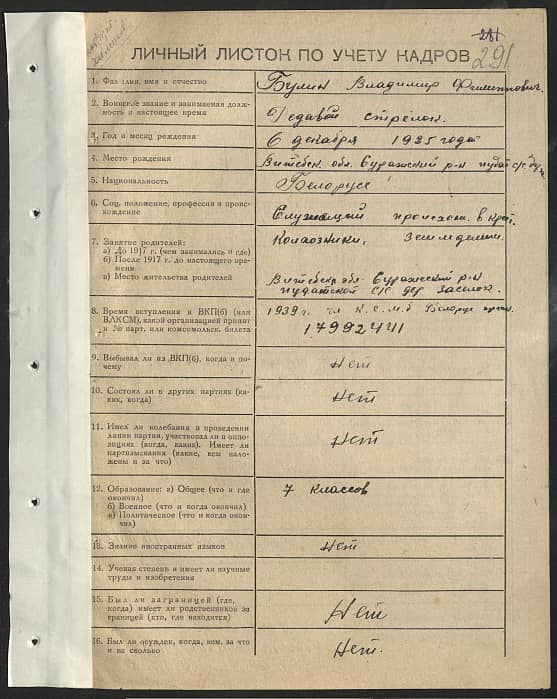 281
291
ЛИЧНЫЙ ЛИСТОК ПО УЧЕТУ КАДРОВ
1. Фамилия, имя и отчество
Булин Владимир Филиппович.
2. Воинское звание и занимаемая долж-
ность в настоящее время
Рядавой стрелок.
3. Год и месяц рождения
6 декабря 1925 года
4. Место рождения
Витебск. обл. Суражский р-н пудат с/с
5. Национальность
Белорусс
6. Соц. положение, профессия и проис-
хождение
Служащий происхож. в крест.
7. Занятие родителей:
а) До 1917 г. (чем занимались и где)
б) После 1917 г. до настоящего вре-
мени
в) Место жительства родителей
Колхозники, земледелии.
Витебск обл. Суражский р-н
пудатской с/с дер
8. Время вступления в ВКП(б) (или
ВЛКСМ), какой организацией принят
и № парт. или комсомольск. билета
1939 г. чл К.С.М.Б Белорус
17992441
9. Выбывал ли из ВКП(б), когда и по-
чему
Нет
10. Состоял ли в других партиях (ка-
ких, когда)
Нет
11. Имел ли колебания в проведении
линии партии, участвовал ли в оппо-
зициях (когда, каких). Имеет ли
партвзыскания (какие, кем нало-
жены и за что)
Нет
12. Образование: а) Общее (что и где
окончил)
б) Военное (что и когда окончил)
в) Политическое (что и когда окон-
чил)
7 классов
13. Знание иностранных языков
Нет
14. Ученая степень и имеет ли научные
труды и изобретения
15. Был ли заграницей (где,
когда) имеет ли родственников за
границей (кто, где находится)
Нет
16. Был ли осужден, когда, кем, за что
и на сколько
Нет.